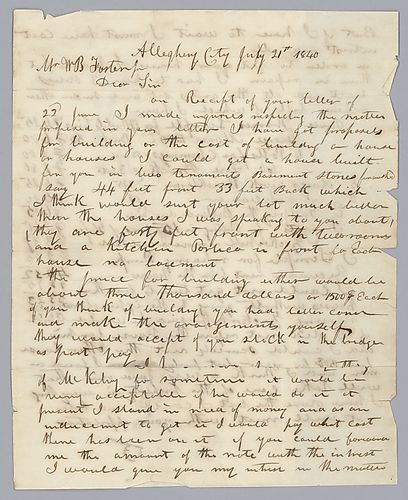 Allegheny City July 21st 1840
Mr W B Foster Jr
Dear Sir
on Receipt of your letter of
22d June I made inquiries respecting the matter
proposed in your letter I have got proposals
for building or the cost of building a house
or houses I could get a house built
for you in two tenament Basement stories
say 44 feet front 33 feet Back which
I think would suit your lot much better
then the houses I was speaking to you about
they are forty feet front with two rooms
and a kitchen Portico in front to Each
house no basement
the price for building either would be
about three thousand dollars or 1500$ Each
if you think of building you had better come
and make the arangements yourself
they would accept of you stock in the bridge
as part pay
of McKelvy to sometime it would be
very acceptable if he would do it at
present I stand in need of money and as an
inducement to get it I would pay what cost
there has been on it if you could forward
me the amount of the note with the intrest
I would give you my intrest in the